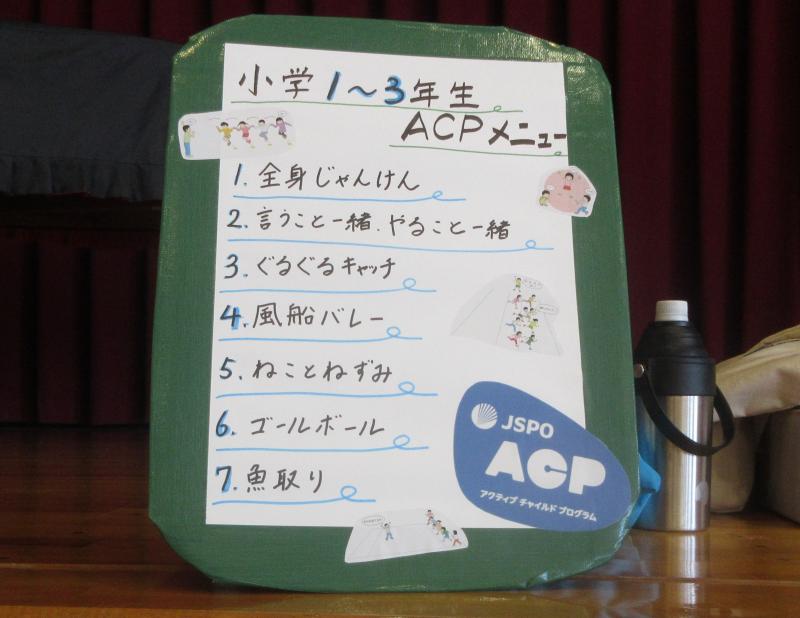 小学1～3年生
ACPメニュー
1. 全身じゃんけん
2. 言うこと一緒、やること一緒
3. ぐるぐるキャッチ
4. 風船バレー
5. ねことねずみ
6. ゴールボール
7. 魚取り
JSPO
ACP
アクティブ チャイルド プログラム